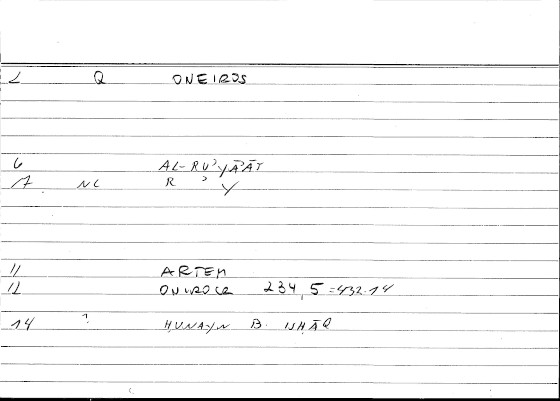 1 Q ONEIROS
6 AL-RU'YĀ'ĀT
7 NC R ' Y
11 ARTEM
12 ONIROCR 234,5=432.14
14 ? ḤUNAYN B. ISḤĀQ